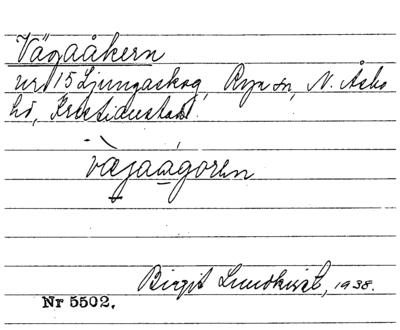 Vägaåkern
nr 15 Ljungaskog, Rya sn, N. Åsbo
hd, Kristianstad.
vægaågoren
Birgit Lundkvist, 1938.
Nr 5502.